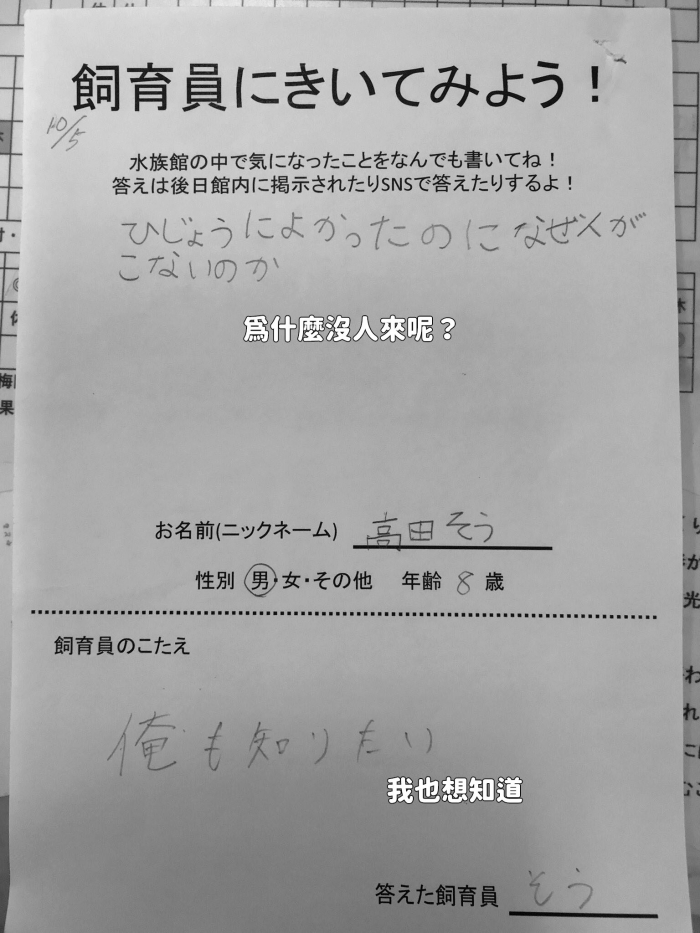 飼育員にきいてみよう！
10/5
水族館の中で気になったことをなんでも書いてね！
答えは後日館内に掲示されたりSNSで答えたりするよ！
ひじょうによかったのになぜ人が
こないのか
爲什麼沒人來呢？
お名前(ニックネーム) 高田そう
性別 男・女・その他 年齢 8 歳
飼育員のこたえ
俺も知りたい
我也想知道
答えた飼育員 そう